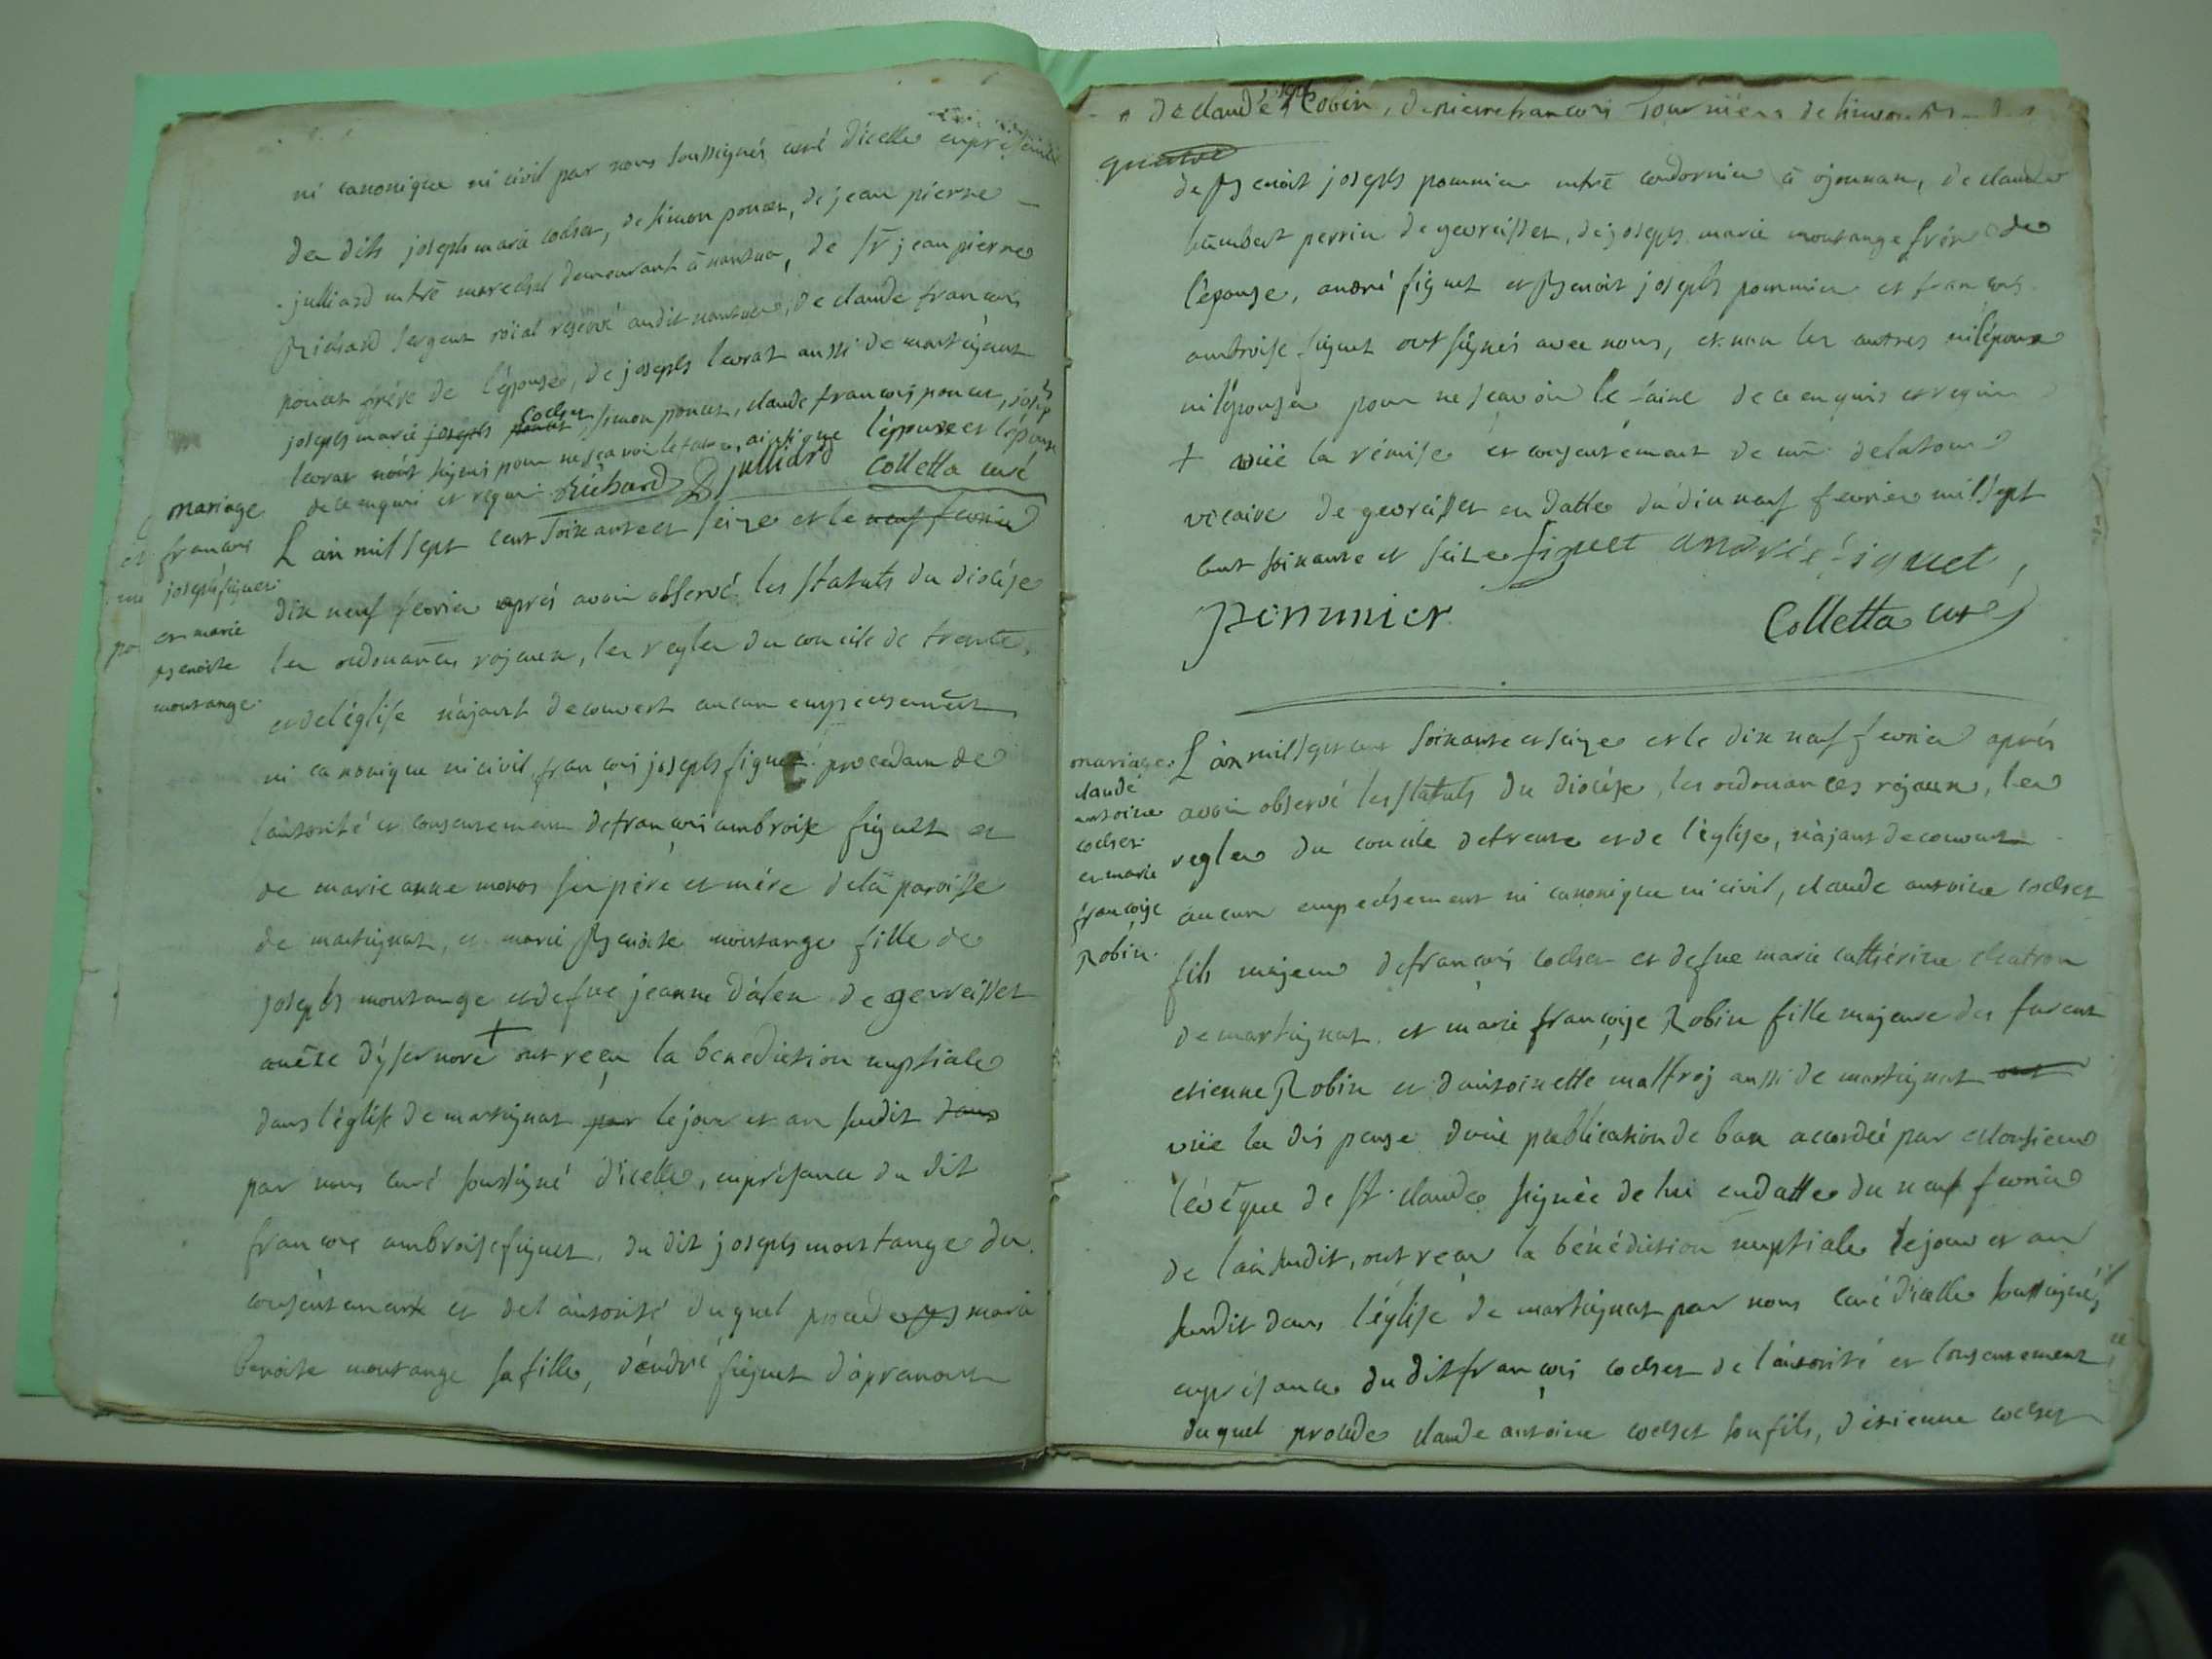 ni canonique ni civil par nous soussignés curé d'icelle en présence
des dits joseph marie cochet, de simon poncet, de jean pierre
julliard mtre marechal demeurant à nantua, de sr jean pierre
Richard sergent roial reservé audit nantua, de claude françois
poncet frère de l'épouse, de joseph levrat aussi de martignat
joseph marie joseph cochet simon poncet, claude françois poncet, joseph
levrat n'ont signés pour ne sçavoir le faire, ainsi que l'époux et l'épouse
de ce enquis et requis. Richard julliard Colletta curé
mariage
françois
joseph figuet
et marie
Benoite
montange.
L'an mil sept cent soixante et seize et le neuf fevrier
dix neuf fevrier après avoir observé les statuts du diocèse
les ordonances rojaux, les regles du concile de trente,
et de l'église n'ajant decouvert aucun empechement
ni canonique ni civil françois joseph figuet procedant de
l'autorité et consentement de françois ambroise figuet et
de marie anne monos ses père et mère de la paroisse
de martignat, et marie Benoite montange fille de
joseph montange et de fue jeanne d'alex de gevreisset
anexe d'ysernore + ont reçu la benediction nuptiale
dans l'église de martignat par le jour et an susdit dans
par nous curé soussigné d'icelle, en présance du dit
françois ambroise figuet, du dit joseph montange du
consentement et de l'autorité duquel procede marie
benoite montange sa fille, d'andré figuet d'apremont
de claude Robin, de pierre françois Tournier, de simon
quatre
de Benoit joseph pommier mtre cordonier à ojonnax, de claude
humbert perrin de gevreisset, de joseph marie montange frère de
l'épouse, andré figuet et Benoit joseph pommier et françois
ambroise figuet ont signés avec nous, et non les autres ni l'époux
ni l'épouse pour ne sçavoir le faire de ce enquis et requis
+ vüe la rémise et consentement de mr delatour
vicaire de gevreisset en datte du dix neuf fevrier mil sept
cent soixante et seize figuet andré figuet
pommier Colletta curé
mariage
claude
antoine
cochet
et marie
françoise
Robin.
L'an mil sept cent soixante et seize et le dix neuf fevrier après
avoir observé les statuts du diocèse, les ordonances rojaux, les
regles du concile de trente et de l'église, n'ajant decouvert
aucun empechement ni canonique ni civil, claude antoine cochet
fils majeur de françois cochet et de fue marie cathérine chatron
de martignat et marie françoise Robin fille majeure des furent
etienne Robin et d'antoinette maffroj aussi de martignat ont
vüe la dispense d'une publication de ban accordée par Monsieur
l'évêque de st claude signée de lui en datte du neuf fevrier
de l'an susdit, ont reçu la bénédiction nuptiale le jour et an
susdit dans l'église de martignat par nous curé d'icelle soussigné,
en présance du dit françois cochet de l'autorité et consentement
duquel procede claude antoine cochet son fils, d'etienne cochet